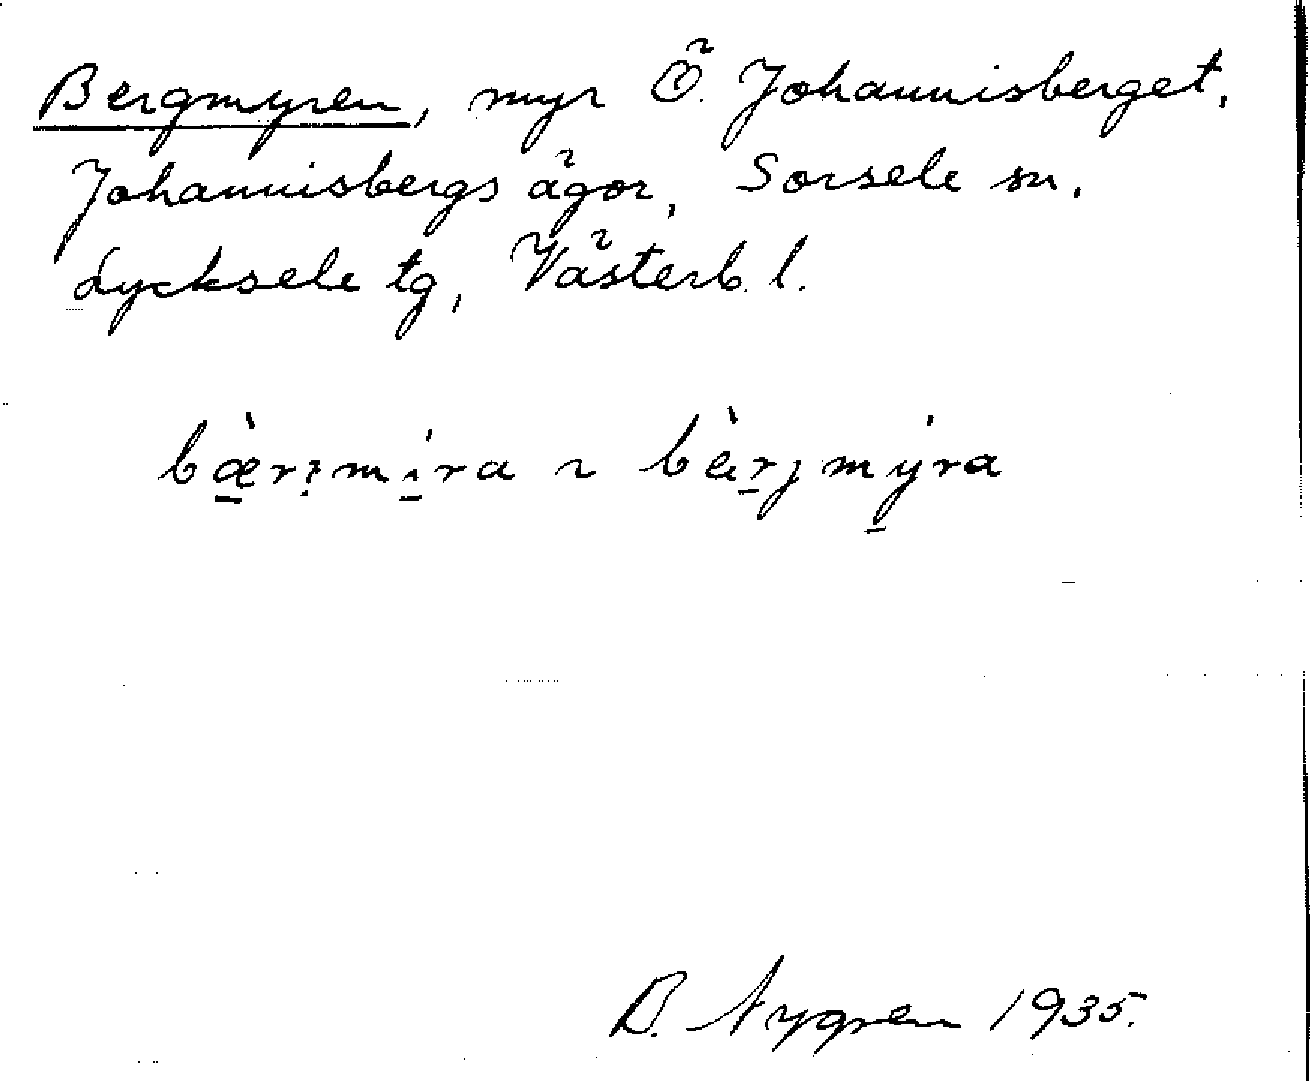 Bergmyren, myr Ö. Johannisberget,
Johannisbergs ägor, Sorsele sn.
Lycksele tg, Västerb. l.
bæ̀rı̣mı́ra ~ bàrjmýra
B. Nygren 1935.